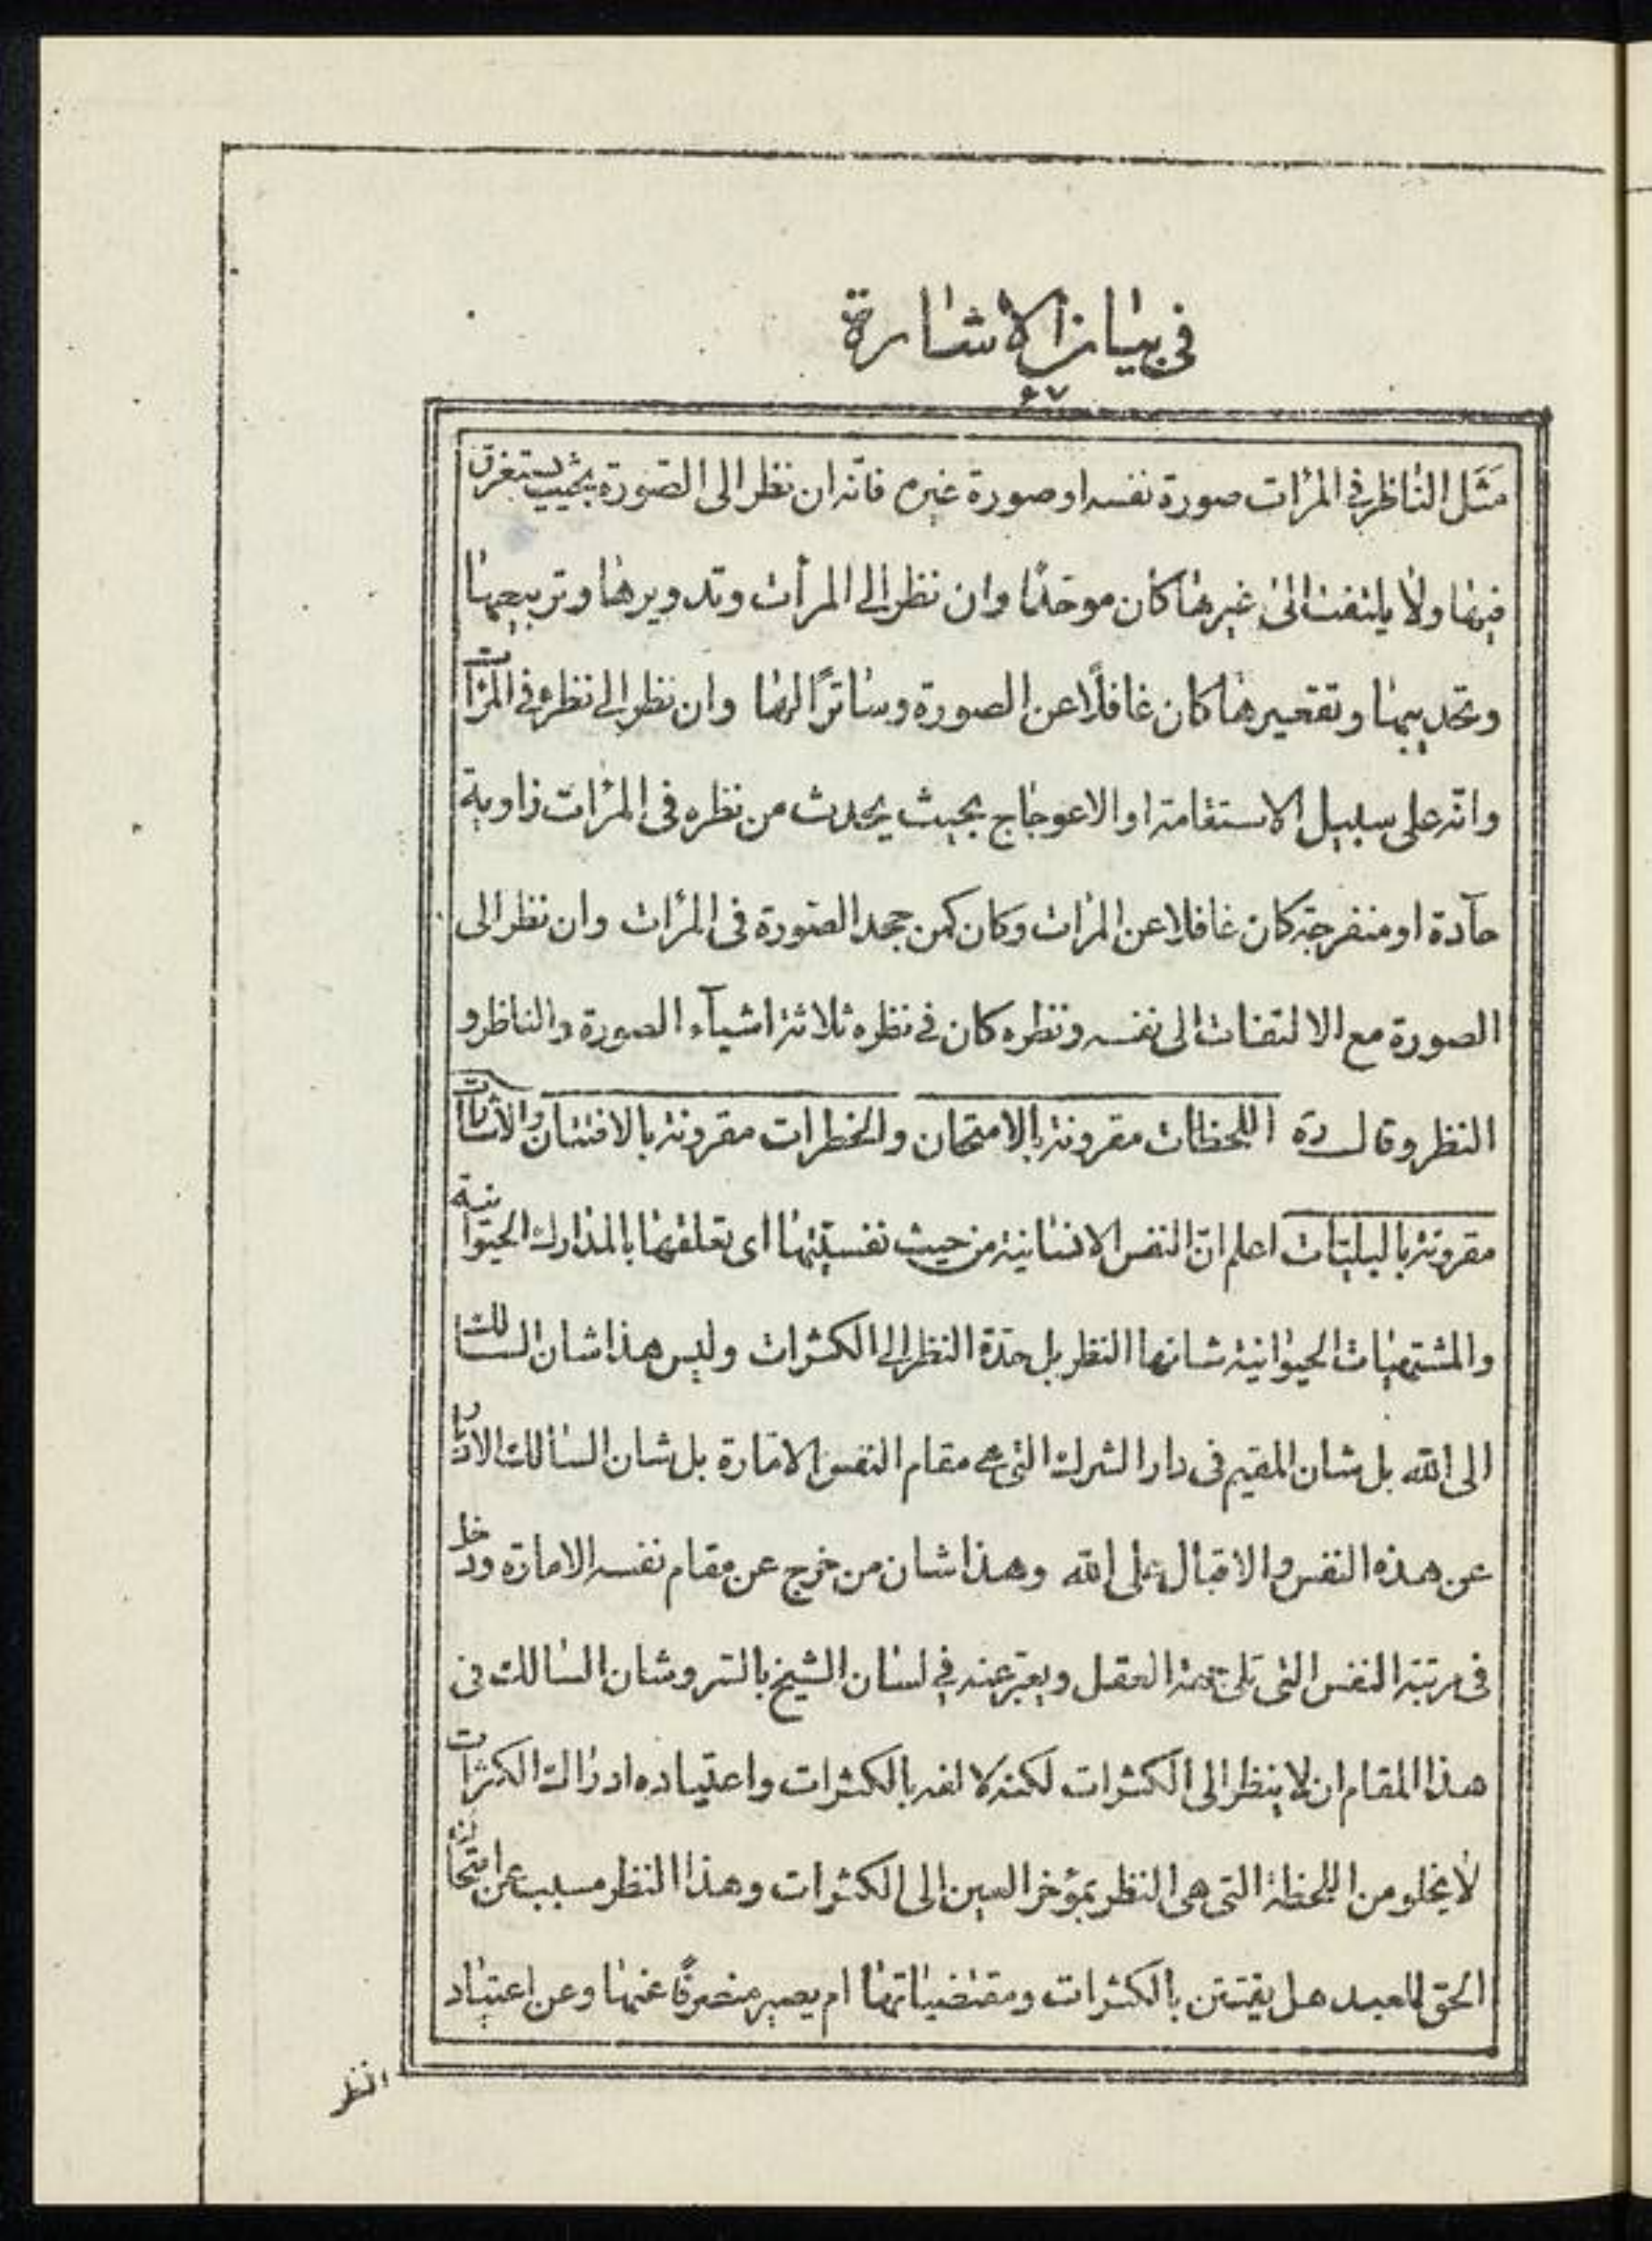 في بيان الاشارة
٤٧
مَثَل الناظر في المرآت صورة نفسه او صورة غيره فانّه ان نظر الى الصّورة بحيث يستغرق
فيها ولا يلتفت الى غيرها كان موحّدًا وان نظر الى المرآت وتدويرها وتربيعها
وتحديبها وتقعيرها كان غافلًا عن الصورة وساترًا لها وان نظر الى نظره في المرآت
وانّه على سبيل الاستقامة او الاعوجاج بحيث يحدث من نظره في المرآت زاوية
حآدة او منفرجة كان غافلا عن المرآت وكان كمن جحد الصّورة في المرآت وان نظر الى
الصورة مع الالتفات الى نفسه ونظره كان في نظره ثلاثة اشيآء الصورة والناظر و
النظر وقال ره اللحظات مقرونة بالامتحان والخطرات مقرونة بالافتتان والاشارات
مقرونة بالبليّات اعلم انّ النفس الانسانية من حيث نفسيّتها اى تعلقها بالمدارك الحيوانية
والمشتهيات الحيوانية شانها النظر بل حدّة النظر الى الكثرات وليس هذا شان السالك
الى الله بل شان المقيم في دار الشرك التى هي مقام النفس الامّارة بل شان السالك الادبار
عن هذه النفس والاقبال على الله وهذا شان من خرج عن مقام نفسه الامارة ودخل
في مرتبة النفس التى تلى جهة العقل ويعبّر عنه في لسان الشيخ بالسّر وشان السالك في
هذا المقام ان لا ينظر الى الكثرات لكنه لالفه بالكثرات واعتياده ادراك الكثرات
لا يخلو من اللحظة التى هي النظر بمؤخر العين الى الكثرات وهذا النظر مسبب عن امتحان
الحق للعبد هل يفتتن بالكثرات ومقتضياتها ام يصير منصرفًا عنها وعن اعتياد
النظر